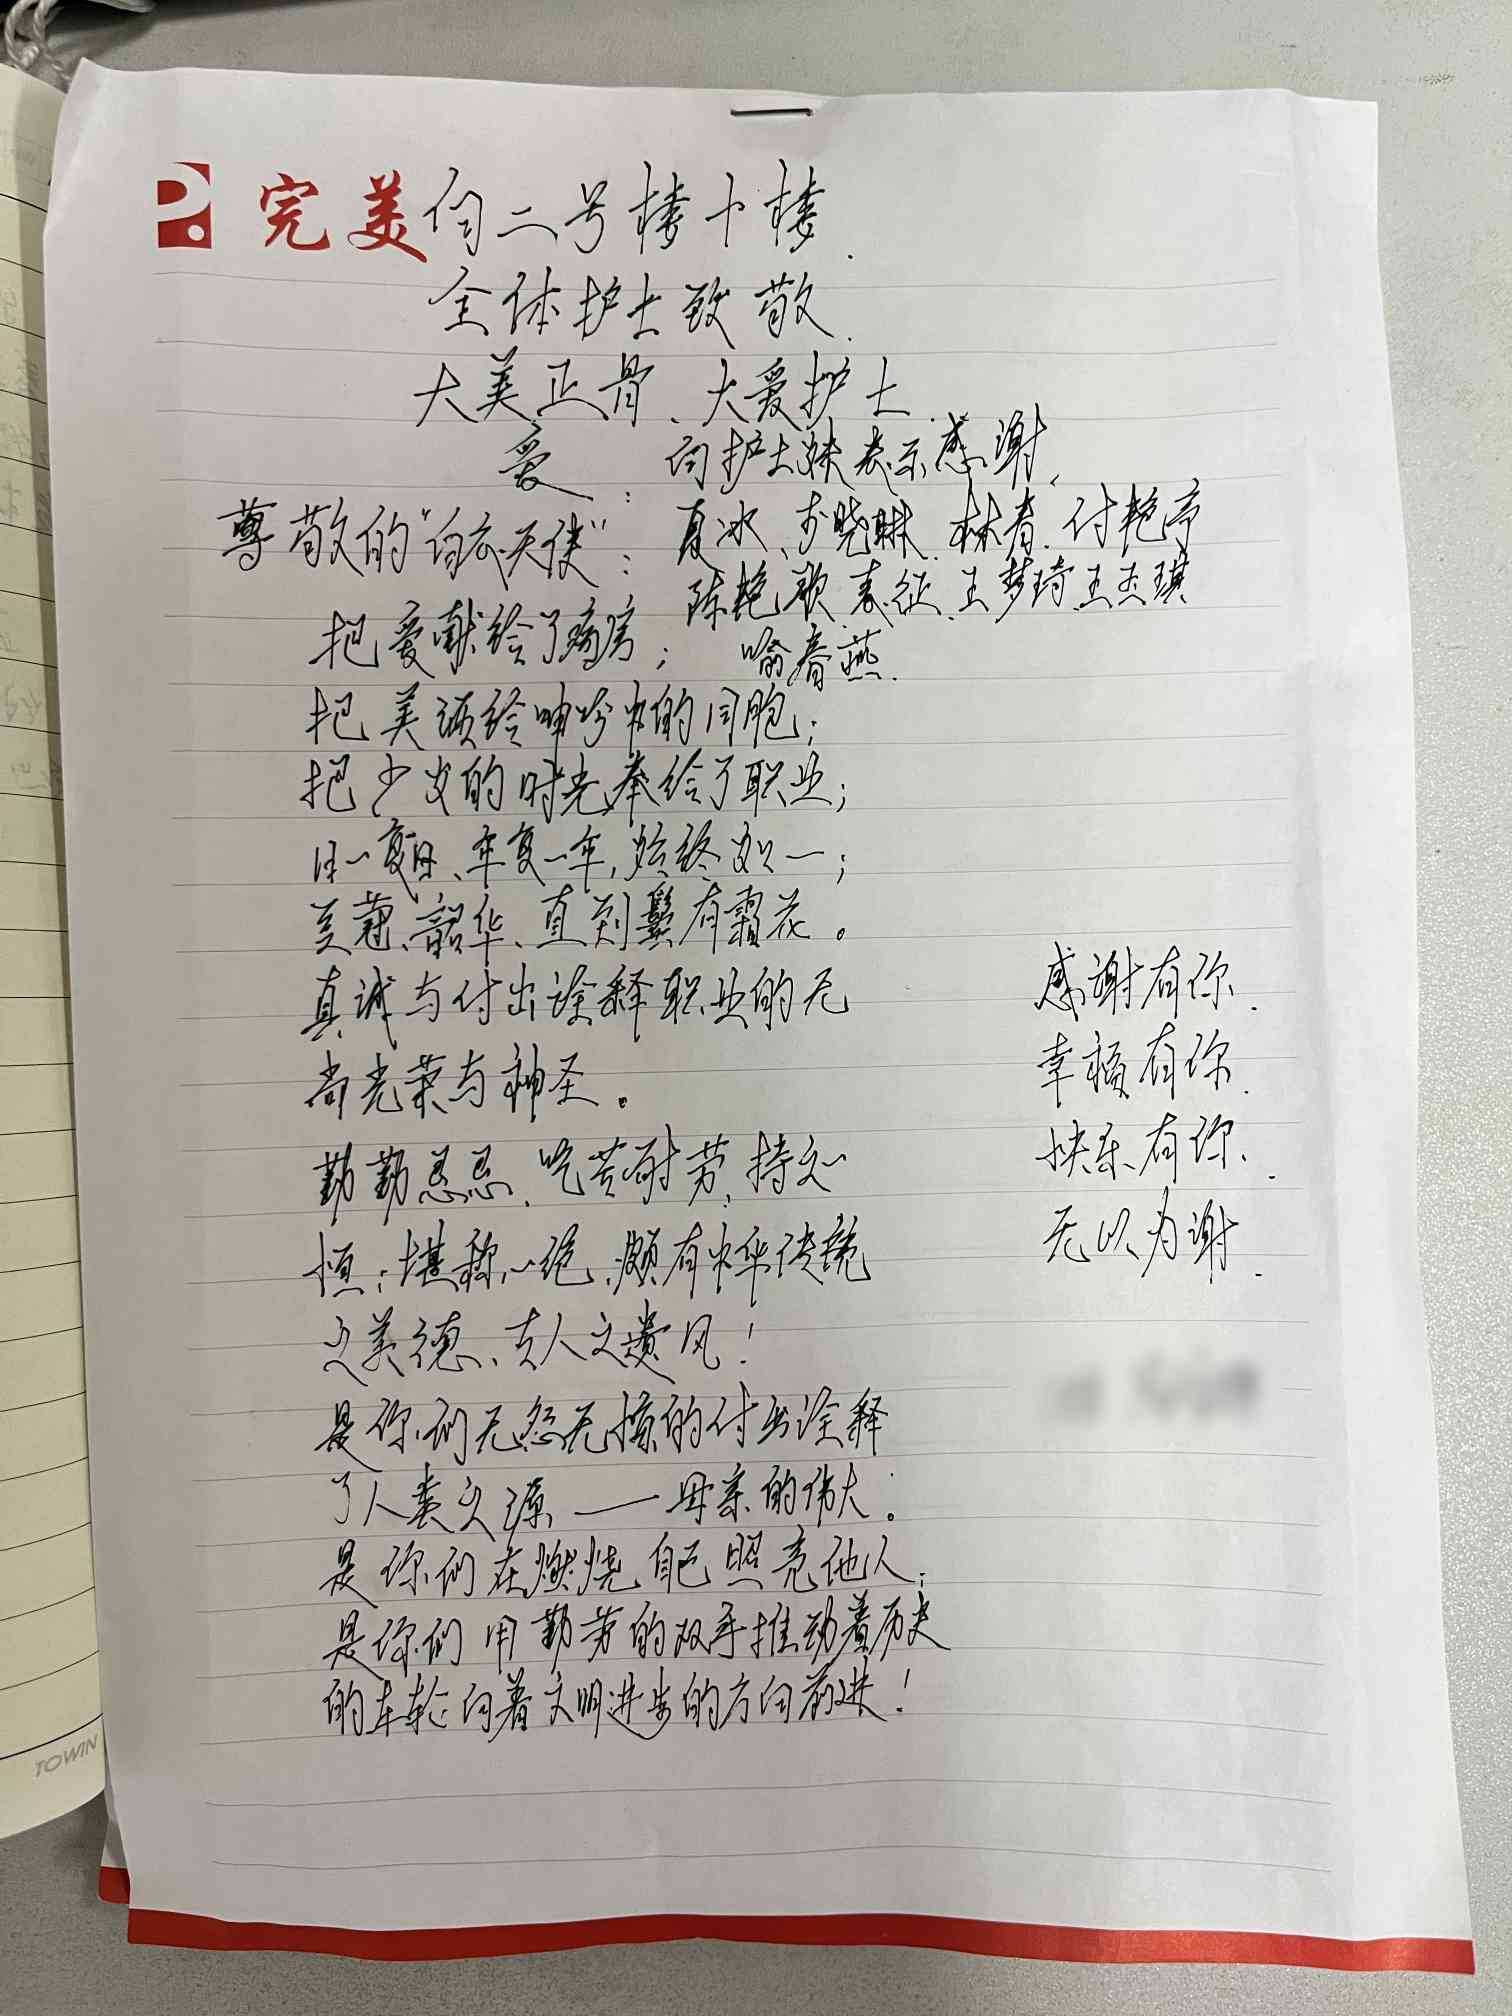 完美 向二号楼十楼.
全体护士致敬.
大美正骨、大爱护士.
爱: 向护士妹表示感谢、
尊敬的"白衣天使": 夏冰、 晓琳、林春、付艳
陈艳歌、袁征、王梦琦、王玉琪
喻春燕.
把爱献给了病房;
把美颂给呻吟中的同胞;
把少女的时光奉给了职业;
日复一日、年复一年,始终如一;
韶华、直到鬓有霜花。
真诚与付出诠释职业的无
尚光荣与神圣。
勤勤恳恳、吃苦耐劳、持之
恒;堪称一绝、颇有中华传统
之美德、古人之遗风!
是你们无怨无悔的付出诠释
了人类之源——母亲的伟大。
是你们在燃烧自己照亮他人;
是你们用勤劳的双手推动着历史
的车轮向着文明进步的方向前进!
感谢有你.
幸福有你.
快乐有你、
无以为谢.
TOWIN